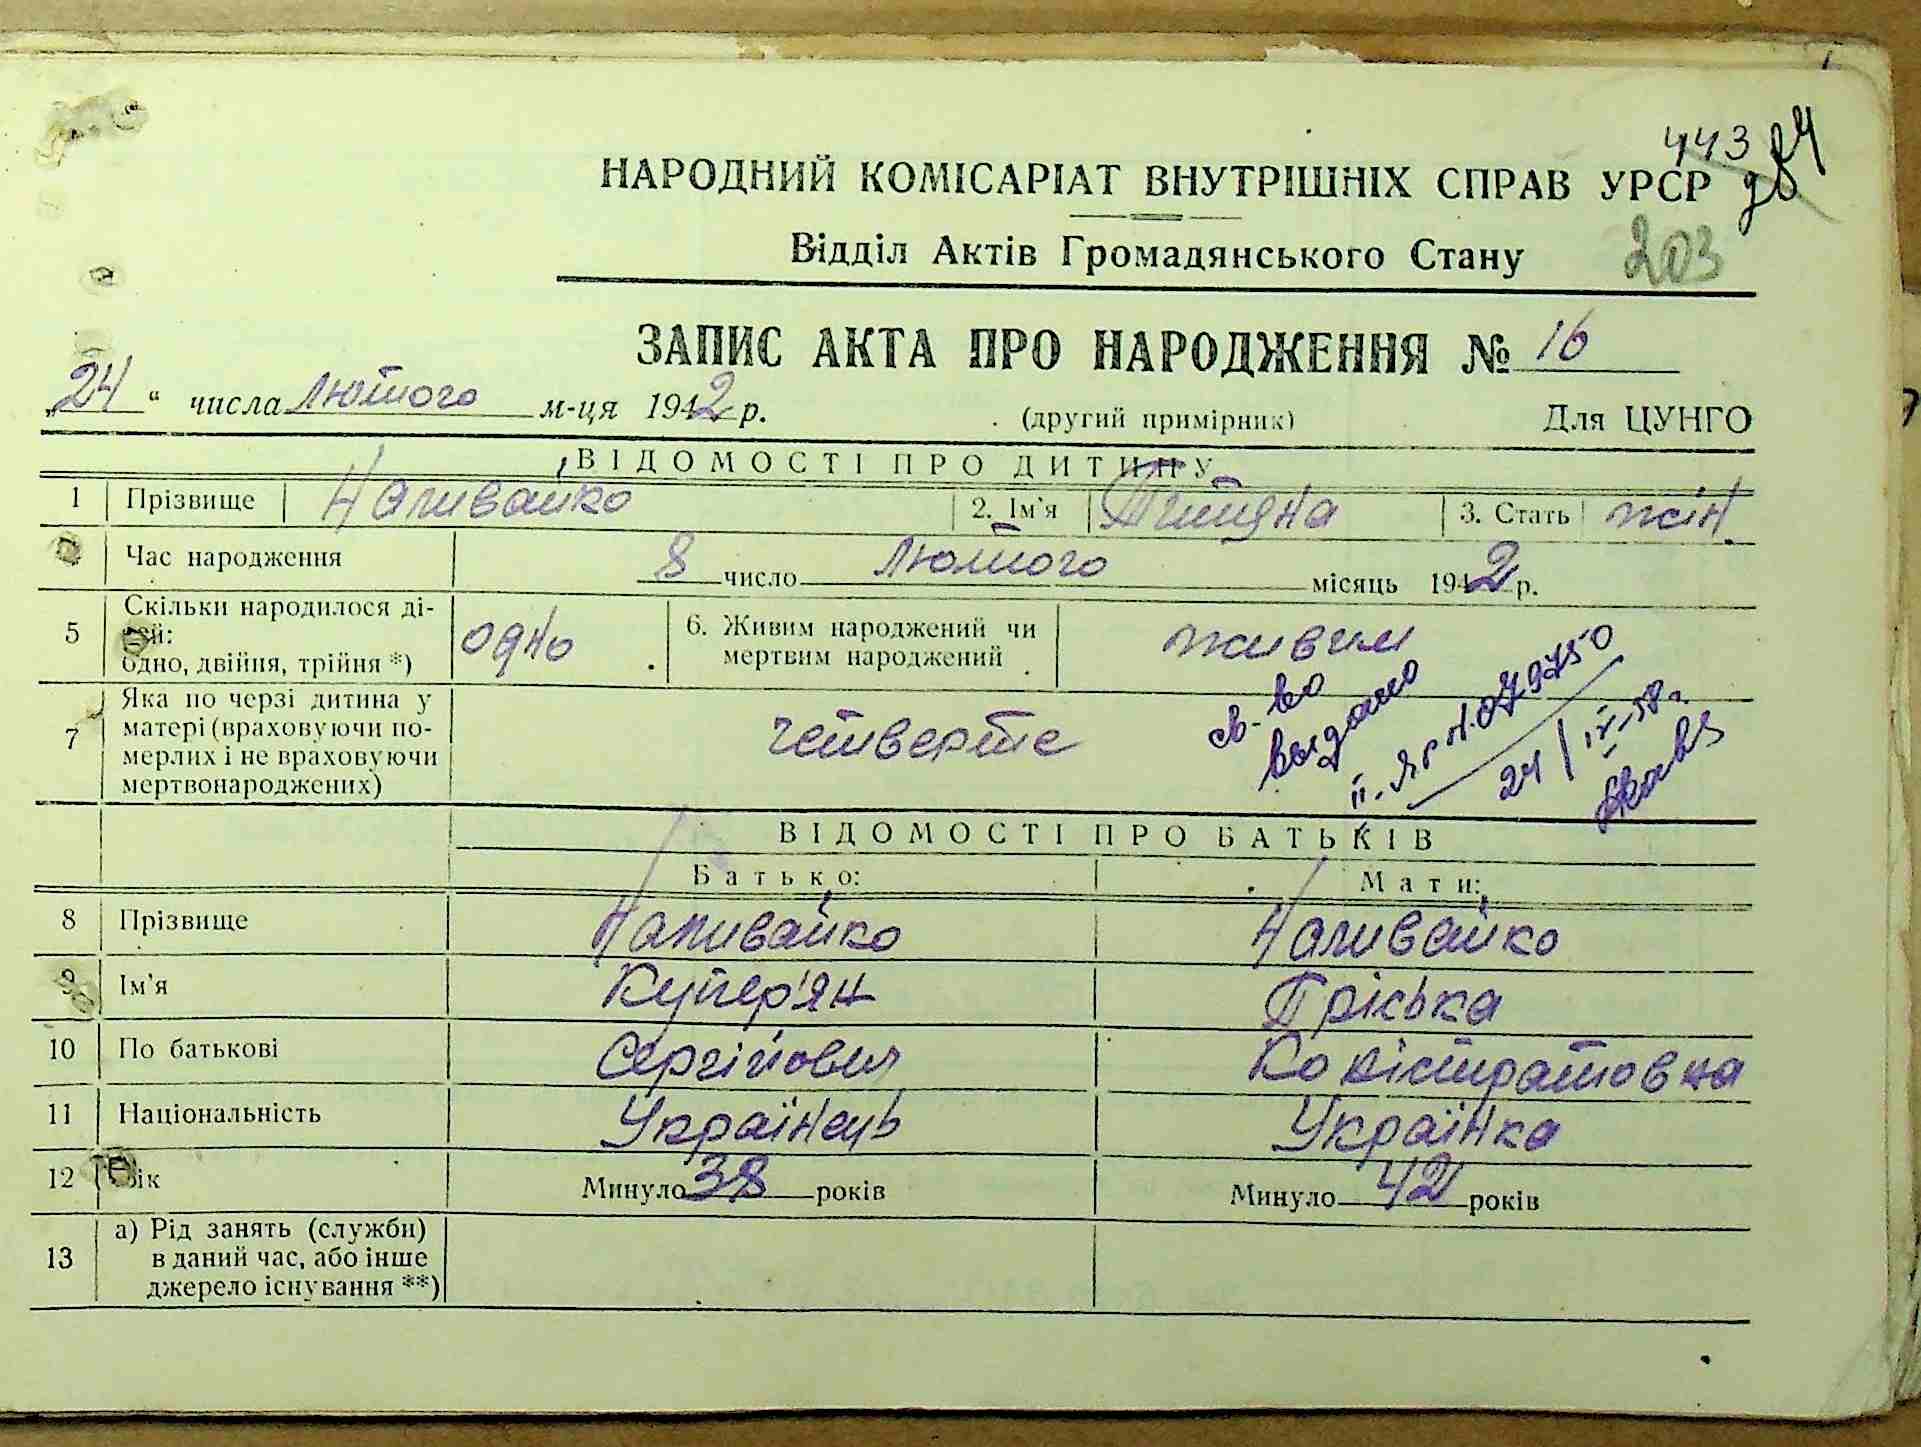 443
НАРОДНИЙ КОМІСАРІАТ ВНУТРІШНІХ СПРАВ УРСР
Відділ Актів Громадянського Стану
203
ЗАПИС АКТА ПРО НАРОДЖЕННЯ № 16
„24“ числа лютого м-ця 1942 р. (другий примірник) Для ЦУНГО
ВІДОМОСТІ ПРО ДИТИНУ
1 Прізвище Наливайко 2. Ім'я 3. Стать жін.
Час народження 8 число лютого місяць 1942 р.
5 Скільки народилося ді-
тей:
одно, двійня, трійня *) одно
6. Живим народжений чи
мертвим народжений живим
7 Яка по черзі дитина у
матері (враховуючи по-
мерлих і не враховуючи
мертвонароджених) четверте
св-во
выдано
24/IV-58г
ВІДОМОСТІ ПРО БАТЬКІВ
Батько: Мати:
8 Прізвище Наливайко Наливайко
9 Ім'я Купер'ян Пріська
10 По батькові Сергійович
11 Національність Українець Українка
12 Вік Минуло 38 років Минуло 42 років
13 а) Рід занять (служби)
в даний час, або інше
джерело існування **)